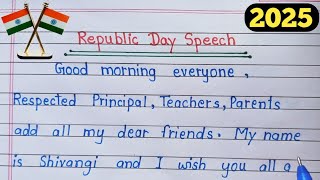 2025
Republic Day Speech
Good morning everyone,
Respected Principal, Teachers, Parents
add all my dear friends. My name
is Shivangi and I wish you all a